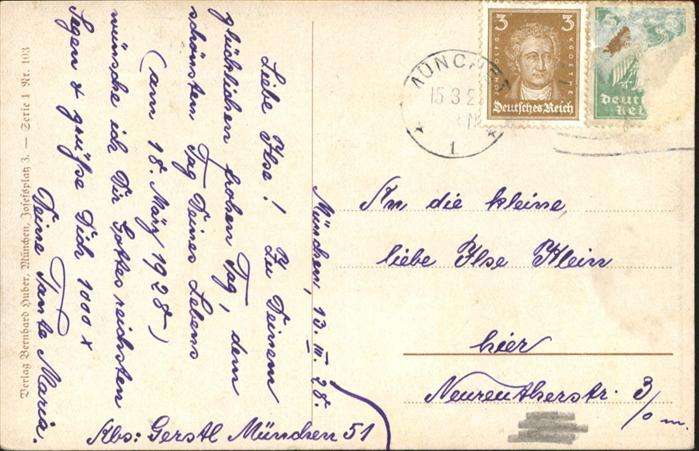 Liebe Ilse! Zu Deinem
glücklichen frohen Tag, dem
schönsten Tag Deines Lebens
(am 18. März 1928)
wünsche ich Dir Gottes reichsten
Segen & grüße Dich 1000 x
Deine Tante Maria.
München, 13. III. 28.
Kbs: Gerstl München 51
Verlag Bernhard Huber, München, Josefsplatz 3. — Serie 1 Nr. 103
MÜNCHEN
15 3 2
1
3 3
Deutsches Reich
5
An die kleine,
liebe Ilse Klein
hier
Neureutherstr. 3/0 m.